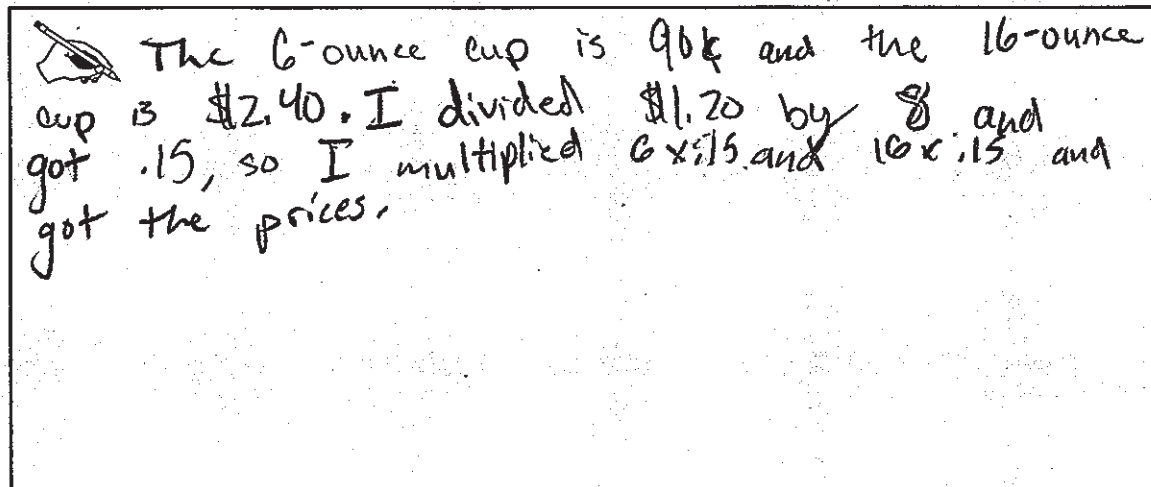 The 6-ounce cup is 90¢ and the 16-ounce
cup is $2.40. I divided $1.20 by 8 and
got .15, so I multiplied 6 x .15 and 16 x .15 and
got the prices.